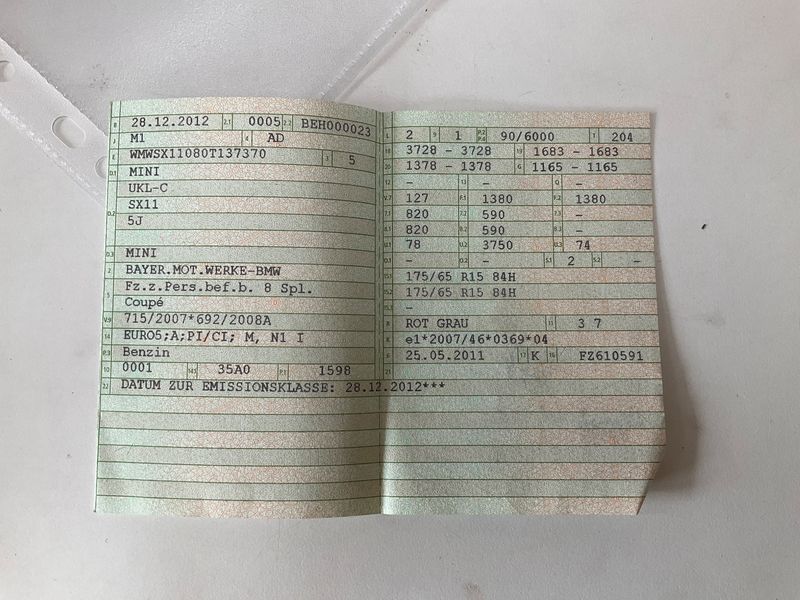 B 28.12.2012 2.1 0005 2.2 BEH000023
J M1 4 AD
E WMWSX11080T137370 3 5
D.1 MINI
UKL-C
D.2 SX11
5J
D.3 MINI
2 BAYER.MOT.WERKE-BMW
5 Fz.z.Pers.bef.b. 8 Spl.
Coupé
V.9 715/2007*692/2008A
14 EURO5;A;PI/CI; M, N1 I
P.3 Benzin
10 0001 14.1 35A0 P.1 1598
22 DATUM ZUR EMISSIONSKLASSE: 28.12.2012***
L 2 9 1 P.2 P.4 90/6000 T 204
18 3728 - 3728 19 1683 - 1683
20 1378 - 1378 G 1165 - 1165
12 - 13 - Q -
V.7 127 F.1 1380 F.2 1380
7.1 820 7.2 590 7.3 -
8.1 820 8.2 590 8.3 -
U.1 78 U.2 3750 U.3 74
O.1 - O.2 - S.1 2 S.2 -
15.1 175/65 R15 84H
15.2 175/65 R15 84H
15.3 -
R ROT GRAU 11 3 7
K e1*2007/46*0369*04
6 25.05.2011 17 K 16 FZ610591
21